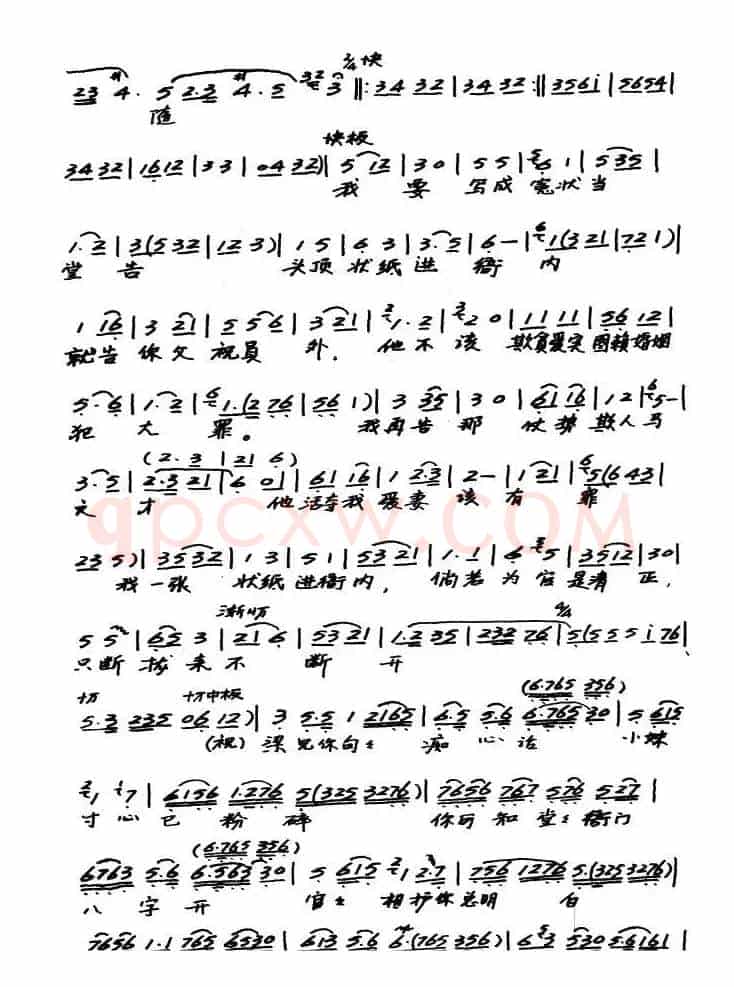 2/4 块
23 #4. 5 2.3 #4.5 3 ‖: 34 32 | 34 32 :‖ 356i | 5654 |
随
块板
3432 | 1612 | 3 3 | 0432) | 5 12 | 30 | 5 5 | 6 1 | 5 35 |
我 要 写成 冤状当
1.2 | 3(532 | 12 3) | 1 5 | 6 3 | 3.5 | 6 — | 1(321 | 721) |
堂 告 头顶 状纸 进 衙 内
1 16 | 3 21 | 5 56 | 3 21 | 1.2 | 2 0 | 11 11 | 56 12 |
就告 你父 祝员 外, 他不 该 欺贫爱笑 图赖婚姻
5.6 | 1.2 | 1.(2 76 | 56 1) | 3 35 | 30 | 61 16 | 12 | 5 — |
犯 大 罪。 我再告 那 仗势 欺人马
(2.3 | 21 6)
3.5 | 2.3 21 | 6 0 | 61 16 | 1 2.3 | 2 — | 1 21 | 5(643 |
文 才 他活夺我 爱妻 该 有 罪
qpcxw.COM
235) | 3532 | 1 3 | 5 1 | 53 21 | 1.1 | 6 5 | 3512 | 30 |
我一张 状纸进衙内, 倘若 为官是清正,
渐切 4/4
5 5 | 65 3 | 21 6 | 53 21 | 1.2 35 | 232 76 | 5(5 5 5 i 76 |
只断 拢 来不 断 开
切 切中板 (6.765 356)
5.3 235 06 12) | 3 5.5 1 2165 | 6.5 5.6 6.765 30 | 5 615
(祝) 梁兄你句: 痴 心话 小妹
2 1 7 | 6156 1.276 5(325 3276) | 7656 767 576 527 |
寸心 已 粉 碎 你可 知堂: 衙门
(6.765 356)
6763 5.6 6.563 30 | 5 615 1 2.7 | 756 1276 5.(325 3276) |
八 字 开 官: 相护你总明 白
7656 1.1 765 6530 | 613 5.6 6.(765 356) | 6 3 530 5.6161 |